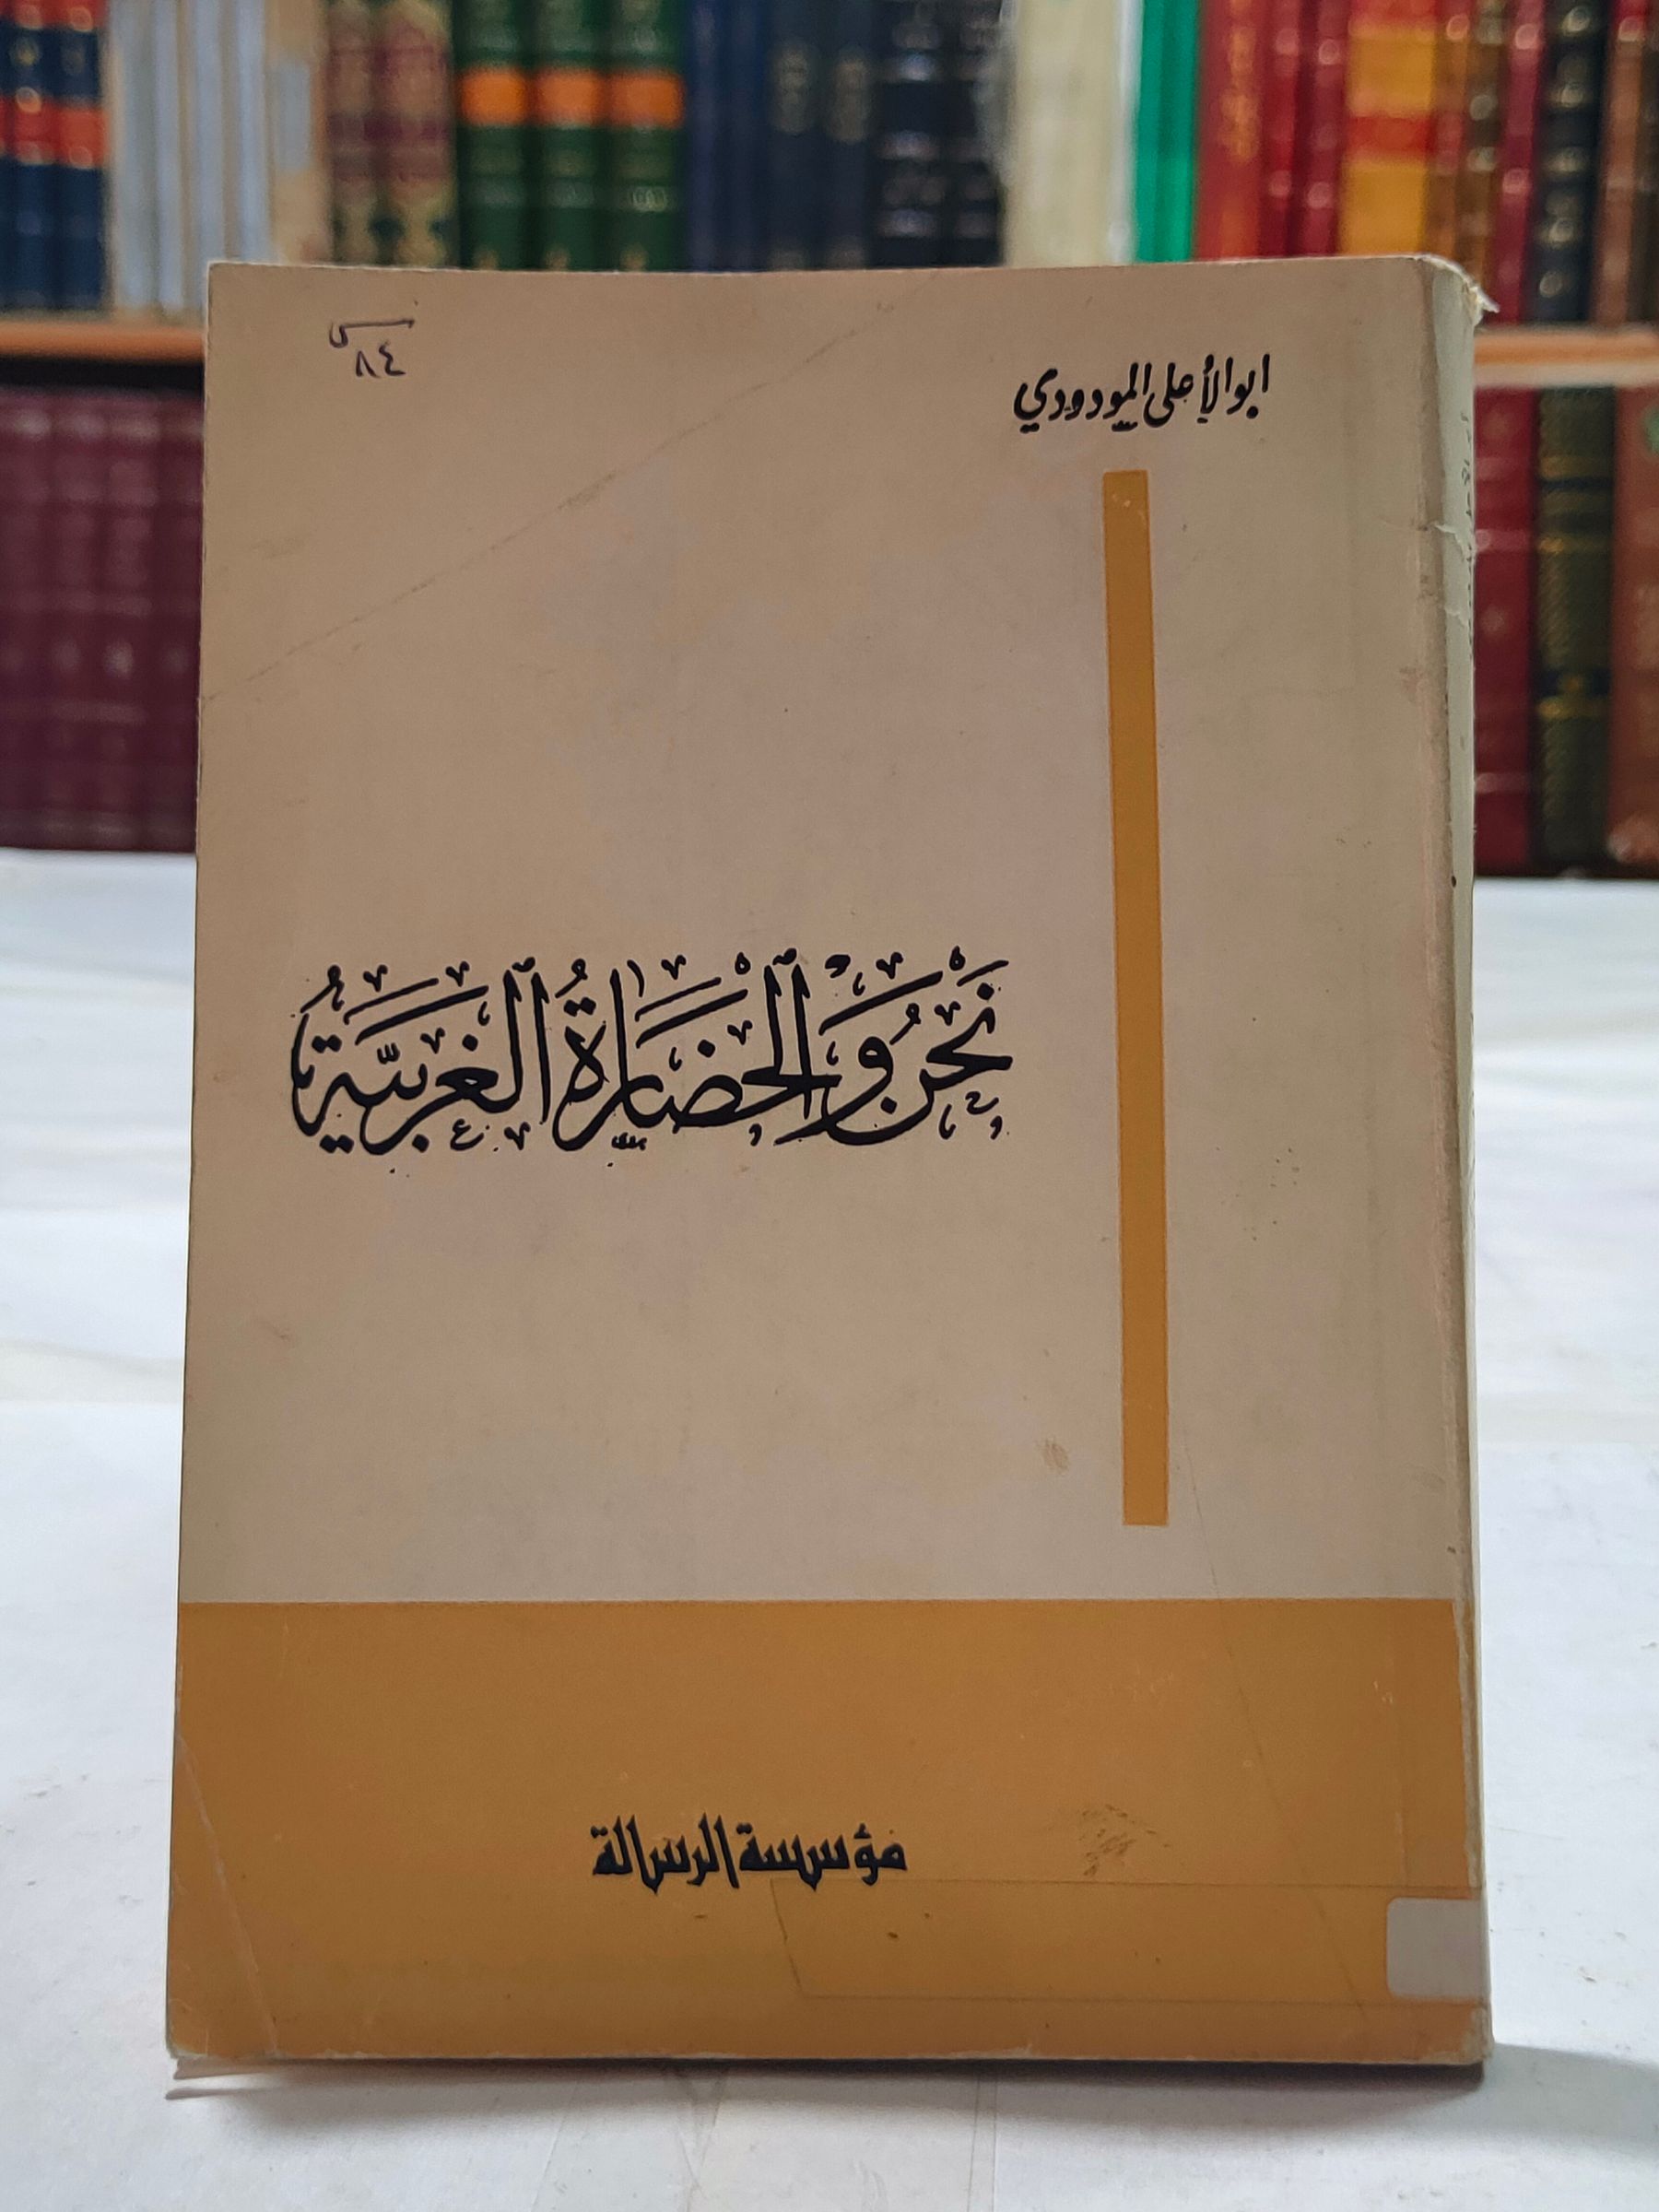 ابو الأعلى المودودي
نَحْنُ وَالْحَضَارَةُ الْغَرْبِيَّةُ
مؤسسة الرسالة
٨٤